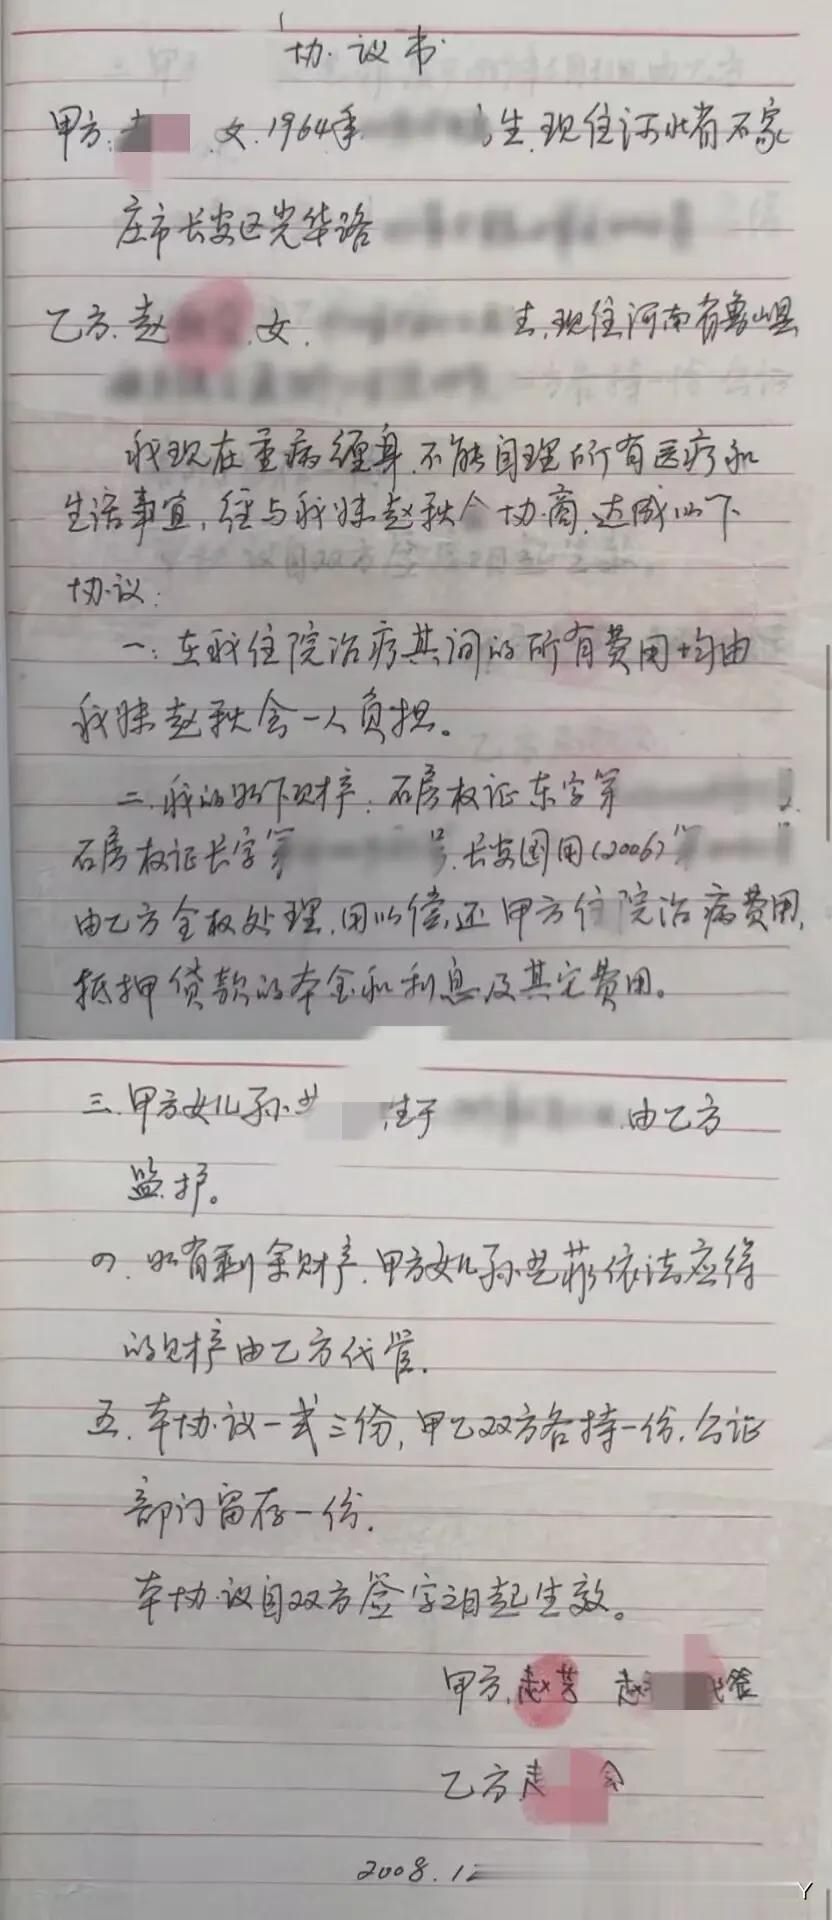 协议书
甲方: 女.1964年 生.现住河北省石家
庄市长安区光华路
乙方.赵 女. 生.现住河南省鲁山县
我现在重病缠身.不能自理所有医疗和
生活事宜,经与我妹赵秋会协商.达成以下
协议:
一:在我住院治疗其间的所有费用均由
我妹赵秋会一人负担。
二.我的名下财产:石房权证东字第
石房权证长字第 号.长安国用(2006)第
由乙方全权处理.用以偿还甲方住院治病费用,
抵押贷款的本金和利息及其它费用。
三.甲方女儿孙艺 .生于 由乙方
监护。
四.如有剩余财产.甲方女儿孙艺菲依法应得
的财产由乙方代管.
五.本协议一式三份,甲乙双方各持一份.公证
部门留存一份.
本协议自双方签字之日起生效。
甲方.赵芳 赵 代签
乙方.赵 会
2008.12
Y